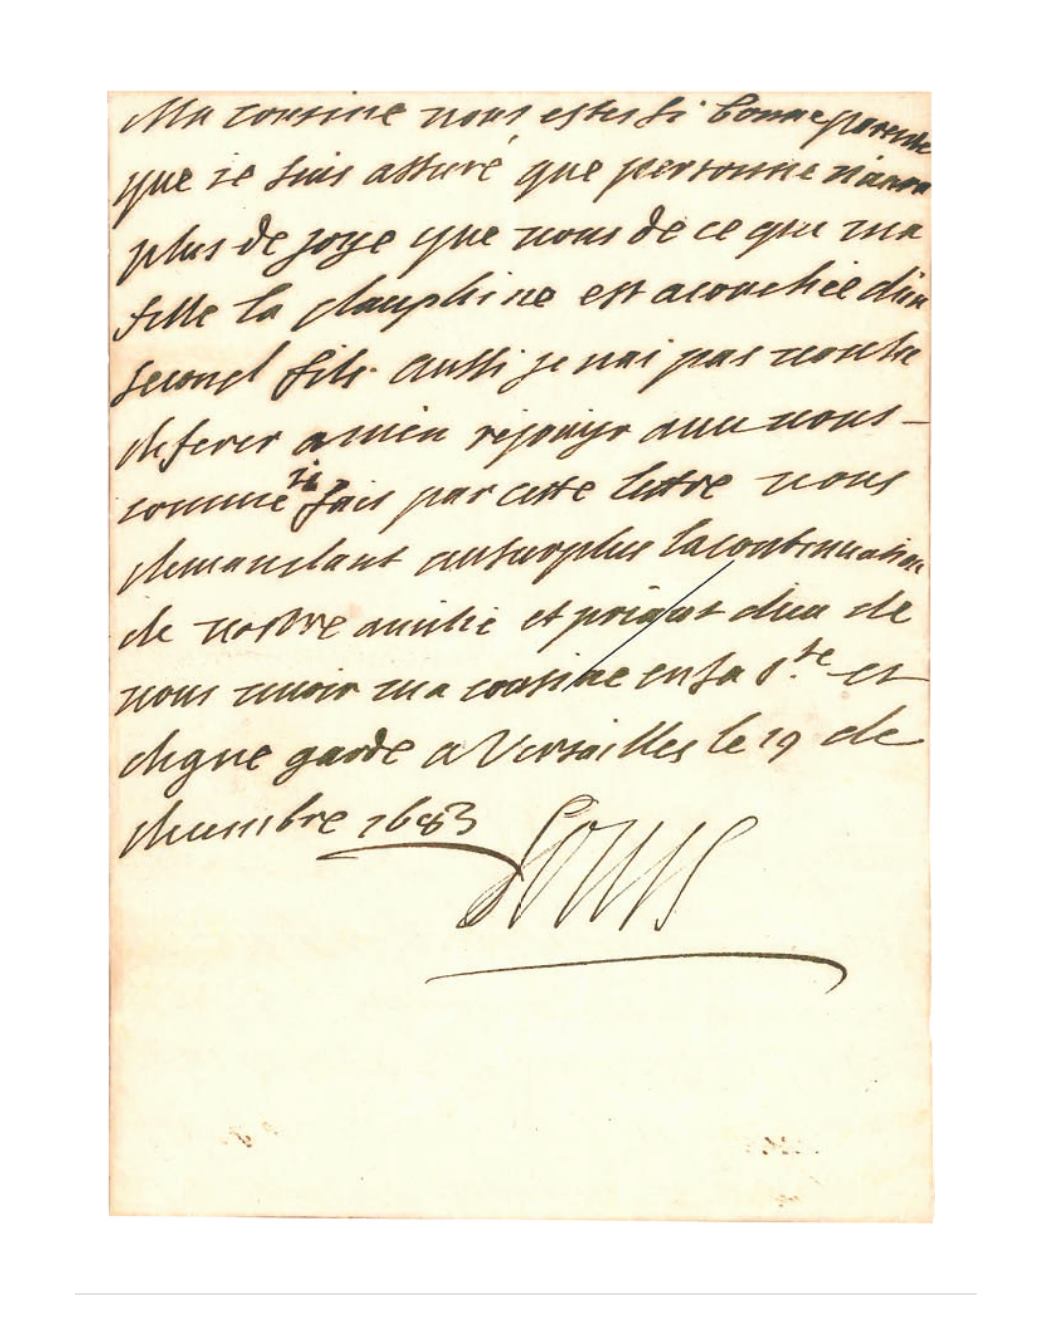 Ma cousine vous estes si bonne parente
que ie suis assuré que personne n'aura
plus de joye que vous de ce que ma
fille la dauphine est acouchée d'un
second fils. aussi je nai pas voulu
diferer a m'en rejouiyr avec vous
comme ie fais par cette lettre vous
demandant au surplus la continuation
de vostre amitié et priant dieu de
vous avoir ma cousine en sa s.te et
digne garde a Versailles le 19 de
decembre 1683
Louis